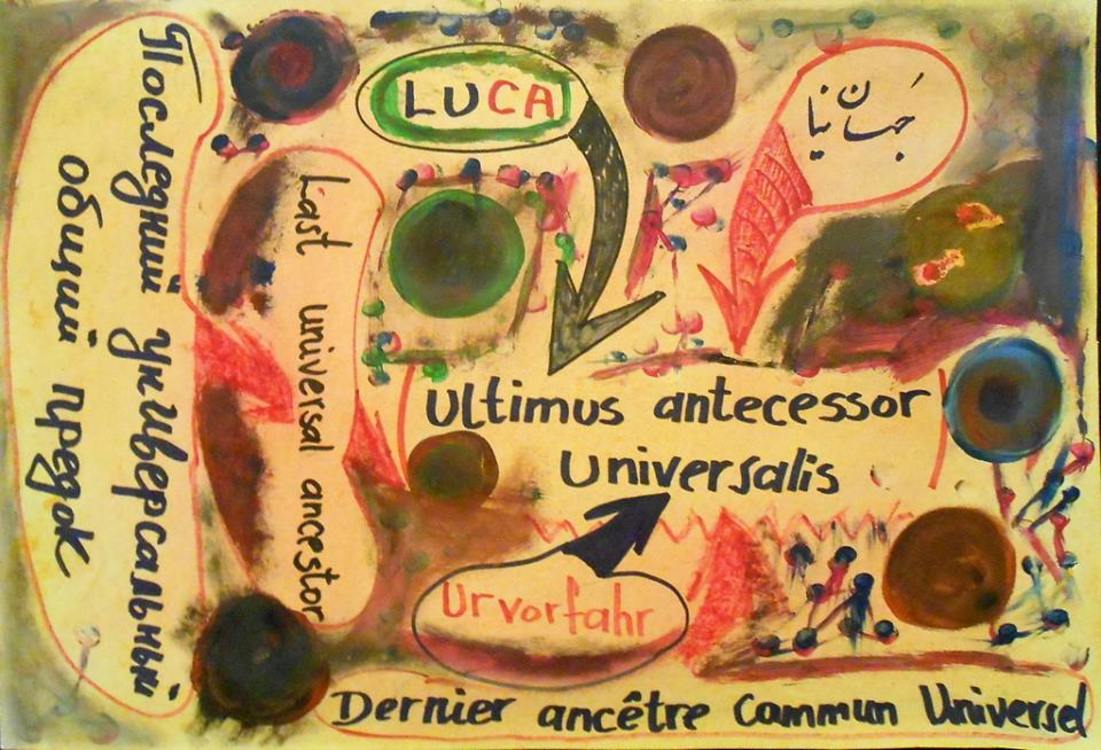 Последний универсальный
общий предок
Last universal ancestor
LUCA
جهان نیا
Ultimus antecessor
Universalis
Urvorfahr
Dernier ancêtre Commun Universel